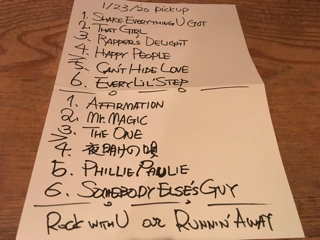 1/23/20 pickup
1. Shake Everything U Got
2. That Girl
3. Rapper's Delight
4. Happy People
5. Can't Hide Love
6. Every Lil' Step
1. Affirmation
2. Mr. Magic
3. The One
4. 夜明けの唄
5. Phillie Paulie
6. Somebody Else's Guy
Rock with U or Runnin' Away